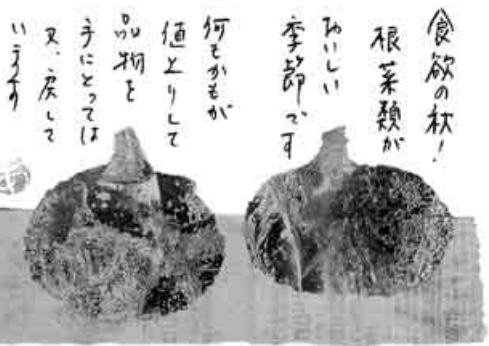 食欲の秋!
根菜類が
おいしい
季節です
何もかもが
値上りして
品物を
手にとっては
又、戻して
います